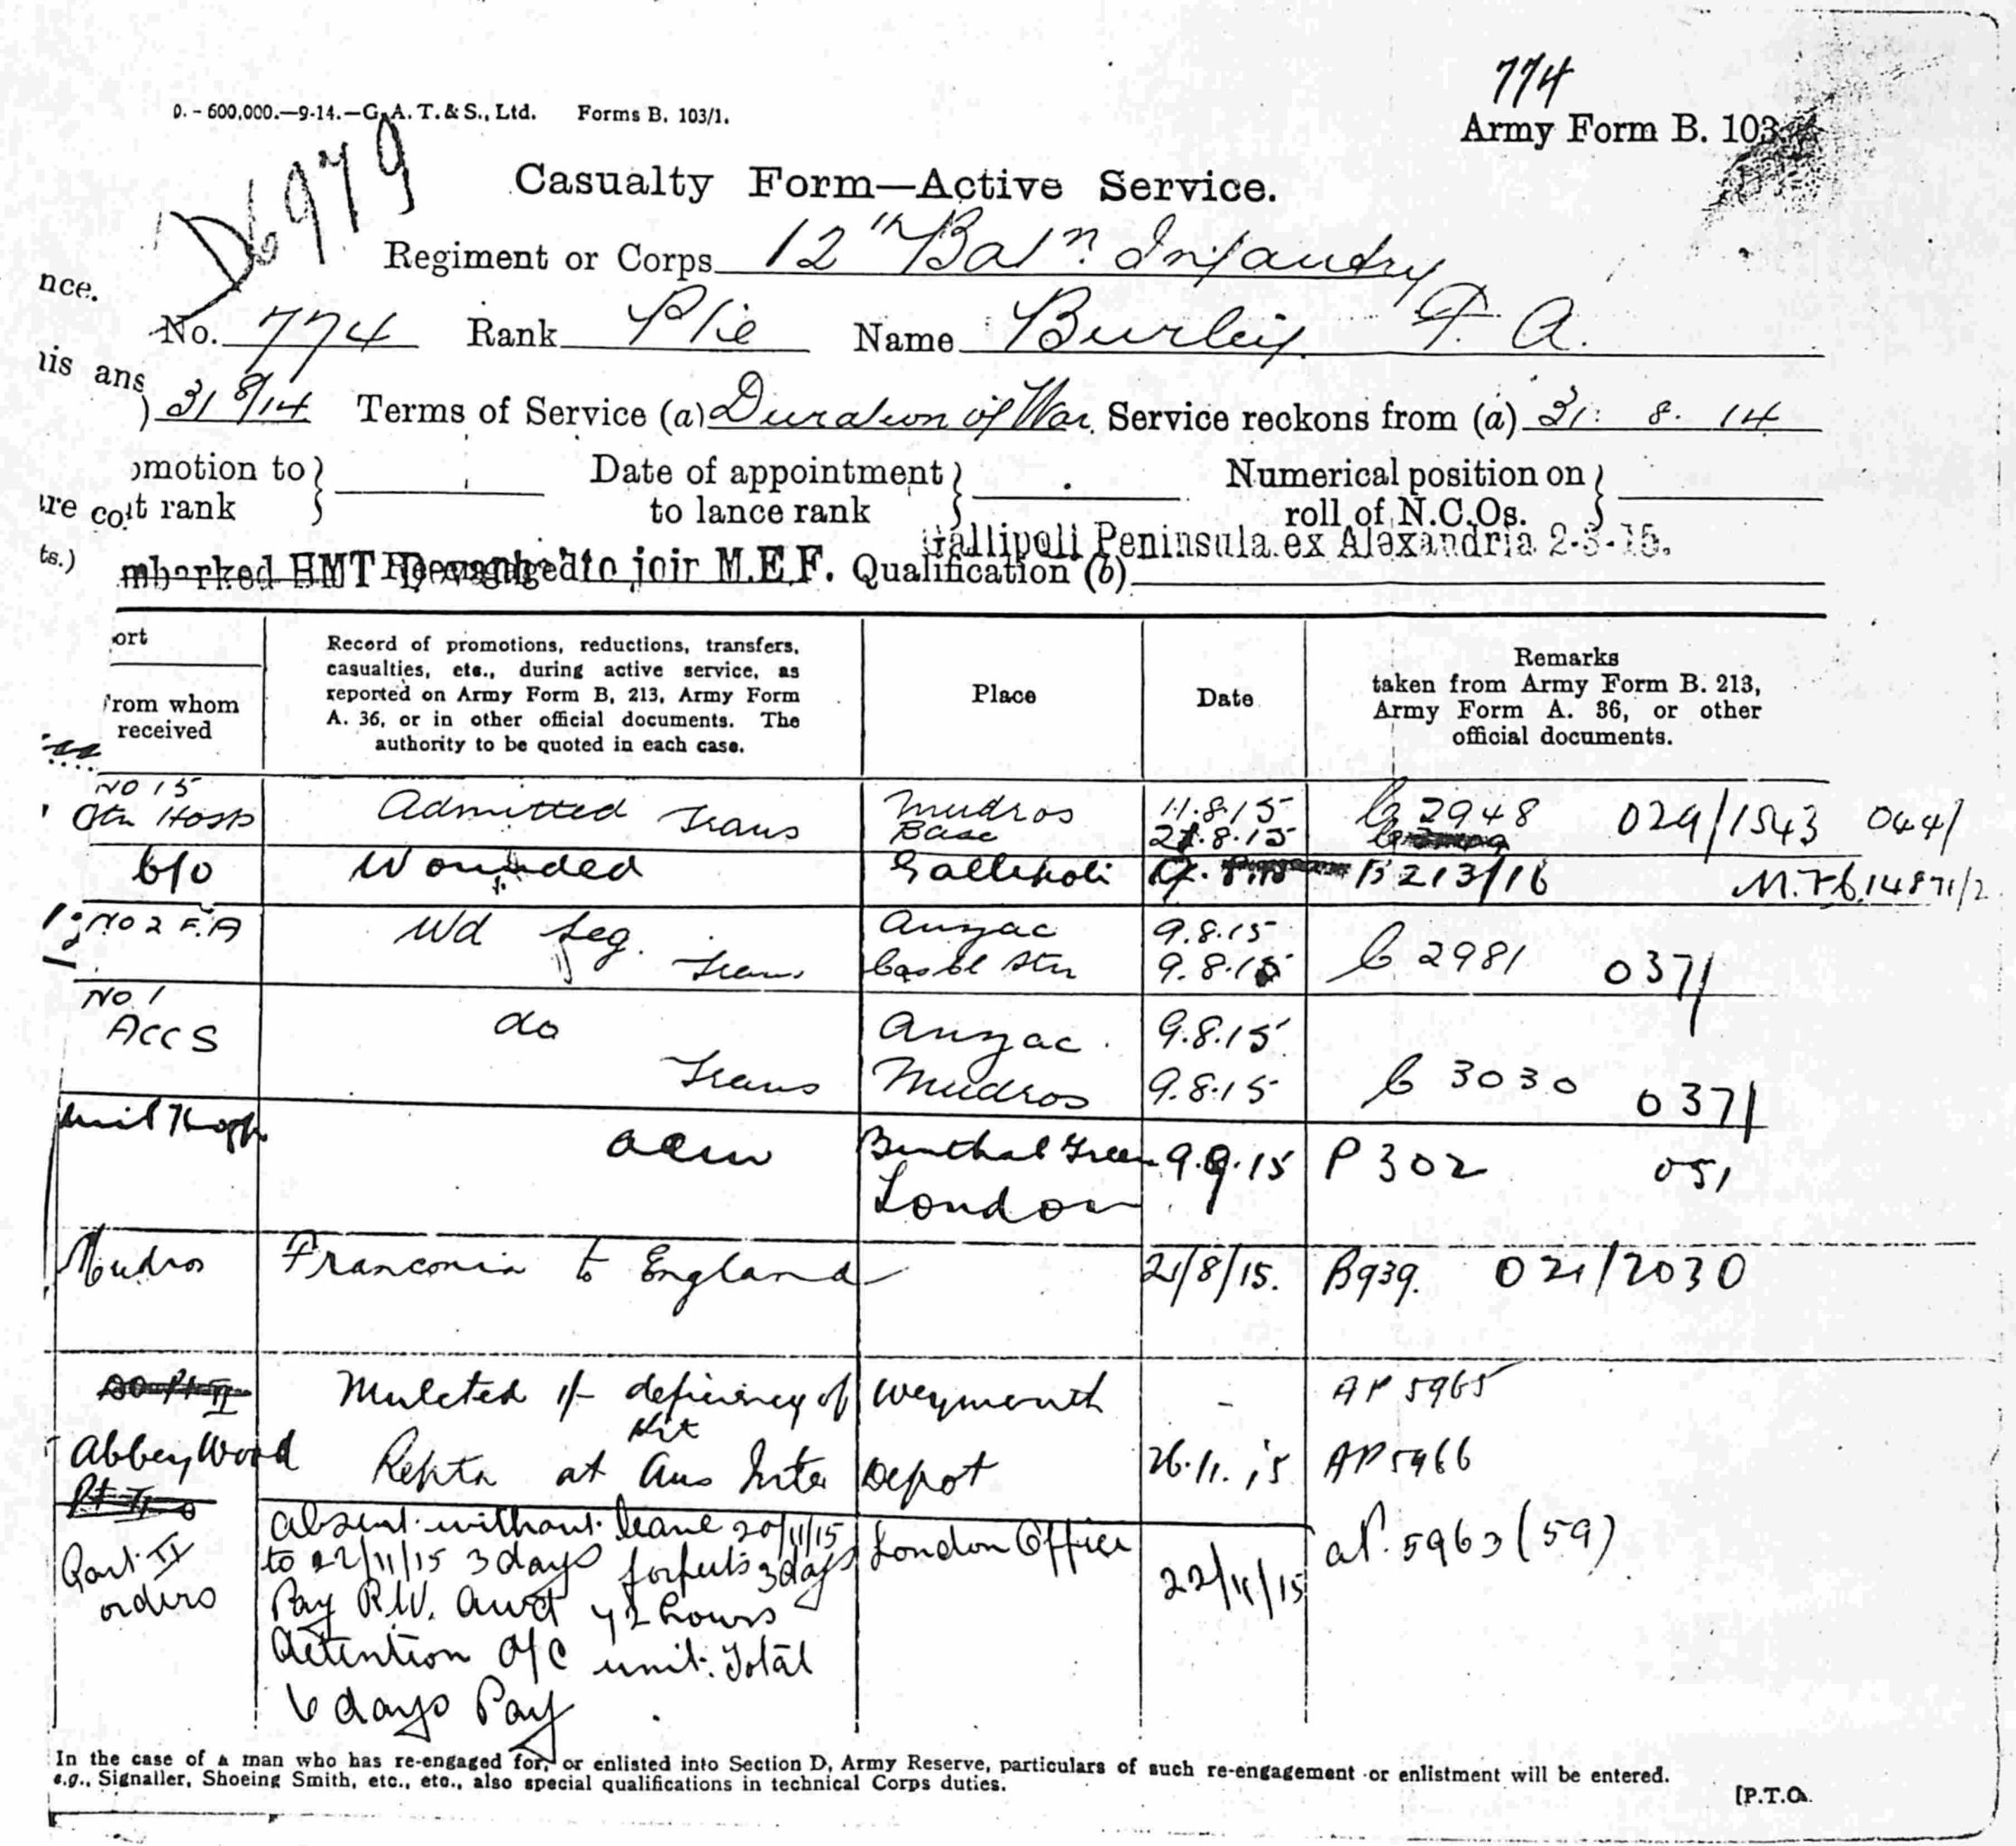 774
D. - 600,000.—9-14.—G. A. T. & S., Ltd. Forms B. 103/1.
Army Form B. 103
D6979
Casualty Form—Active Service.
Regiment or Corps 12th Batn. Infantry
nce.
No. 774 Rank Pte Name Burley F. A.
his ans
) 31/8/14 Terms of Service (a) Duration of War. Service reckons from (a) 31. 8. 14
omotion to } Date of appointment } Numerical position on }
are co
t rank to lance rank roll of N.C.Os.
Gallipoli Peninsula ex Alexandria 2-3-15.
ts.)
mbarked HMT to join M.E.F. Qualification (b)
ort
rom whom received
Record of promotions, reductions, transfers,
casualties, etc., during active service, as
reported on Army Form B, 213, Army Form
A. 36, or in other official documents. The
authority to be quoted in each case.
Place
Date
Remarks
taken from Army Form B. 213,
Army Form A. 36, or other
official documents.
No 15
Stn Hosp Admitted Trans Mudros 11.8.15 C 2948 029/1543 044/
Base 21.8.15
C/O Wounded Gallipoli B 213/16 M.F.6.14871/2
No 2 F.A Wd Leg. Anzac 9.8.15
Trans Cas Cl Stn 9.8.15 C 2981 0371
No 1
ACCS do Anzac. 9.8.15
Trans Mudros 9.8.15 C 3030 0371
Mil Hosp. adm Benthal Green 9.9.15 P 302 051
London
Mudros Franconia to England 21/8/15. B939. 021/2030
Mulcted 1/- deficiency of Weymouth - AP 5965
Kit
Abbey Wood Reptd at Aus Inter Depot 26.11.15 AP 5966
Pt II
absent without leave 20/11/15 London Office aP. 5963 (59)
Part II
orders
to 22/11/15 3 days forfeits 3 days 22/11/15
Pay R.W. Awd 72 hours
detention O/C unit. Total
6 days Pay
In the case of a man who has re-engaged for, or enlisted into Section D, Army Reserve, particulars of such re-engagement or enlistment will be entered.
e.g., Signaller, Shoeing Smith, etc., etc., also special qualifications in technical Corps duties.
[P.T.O.